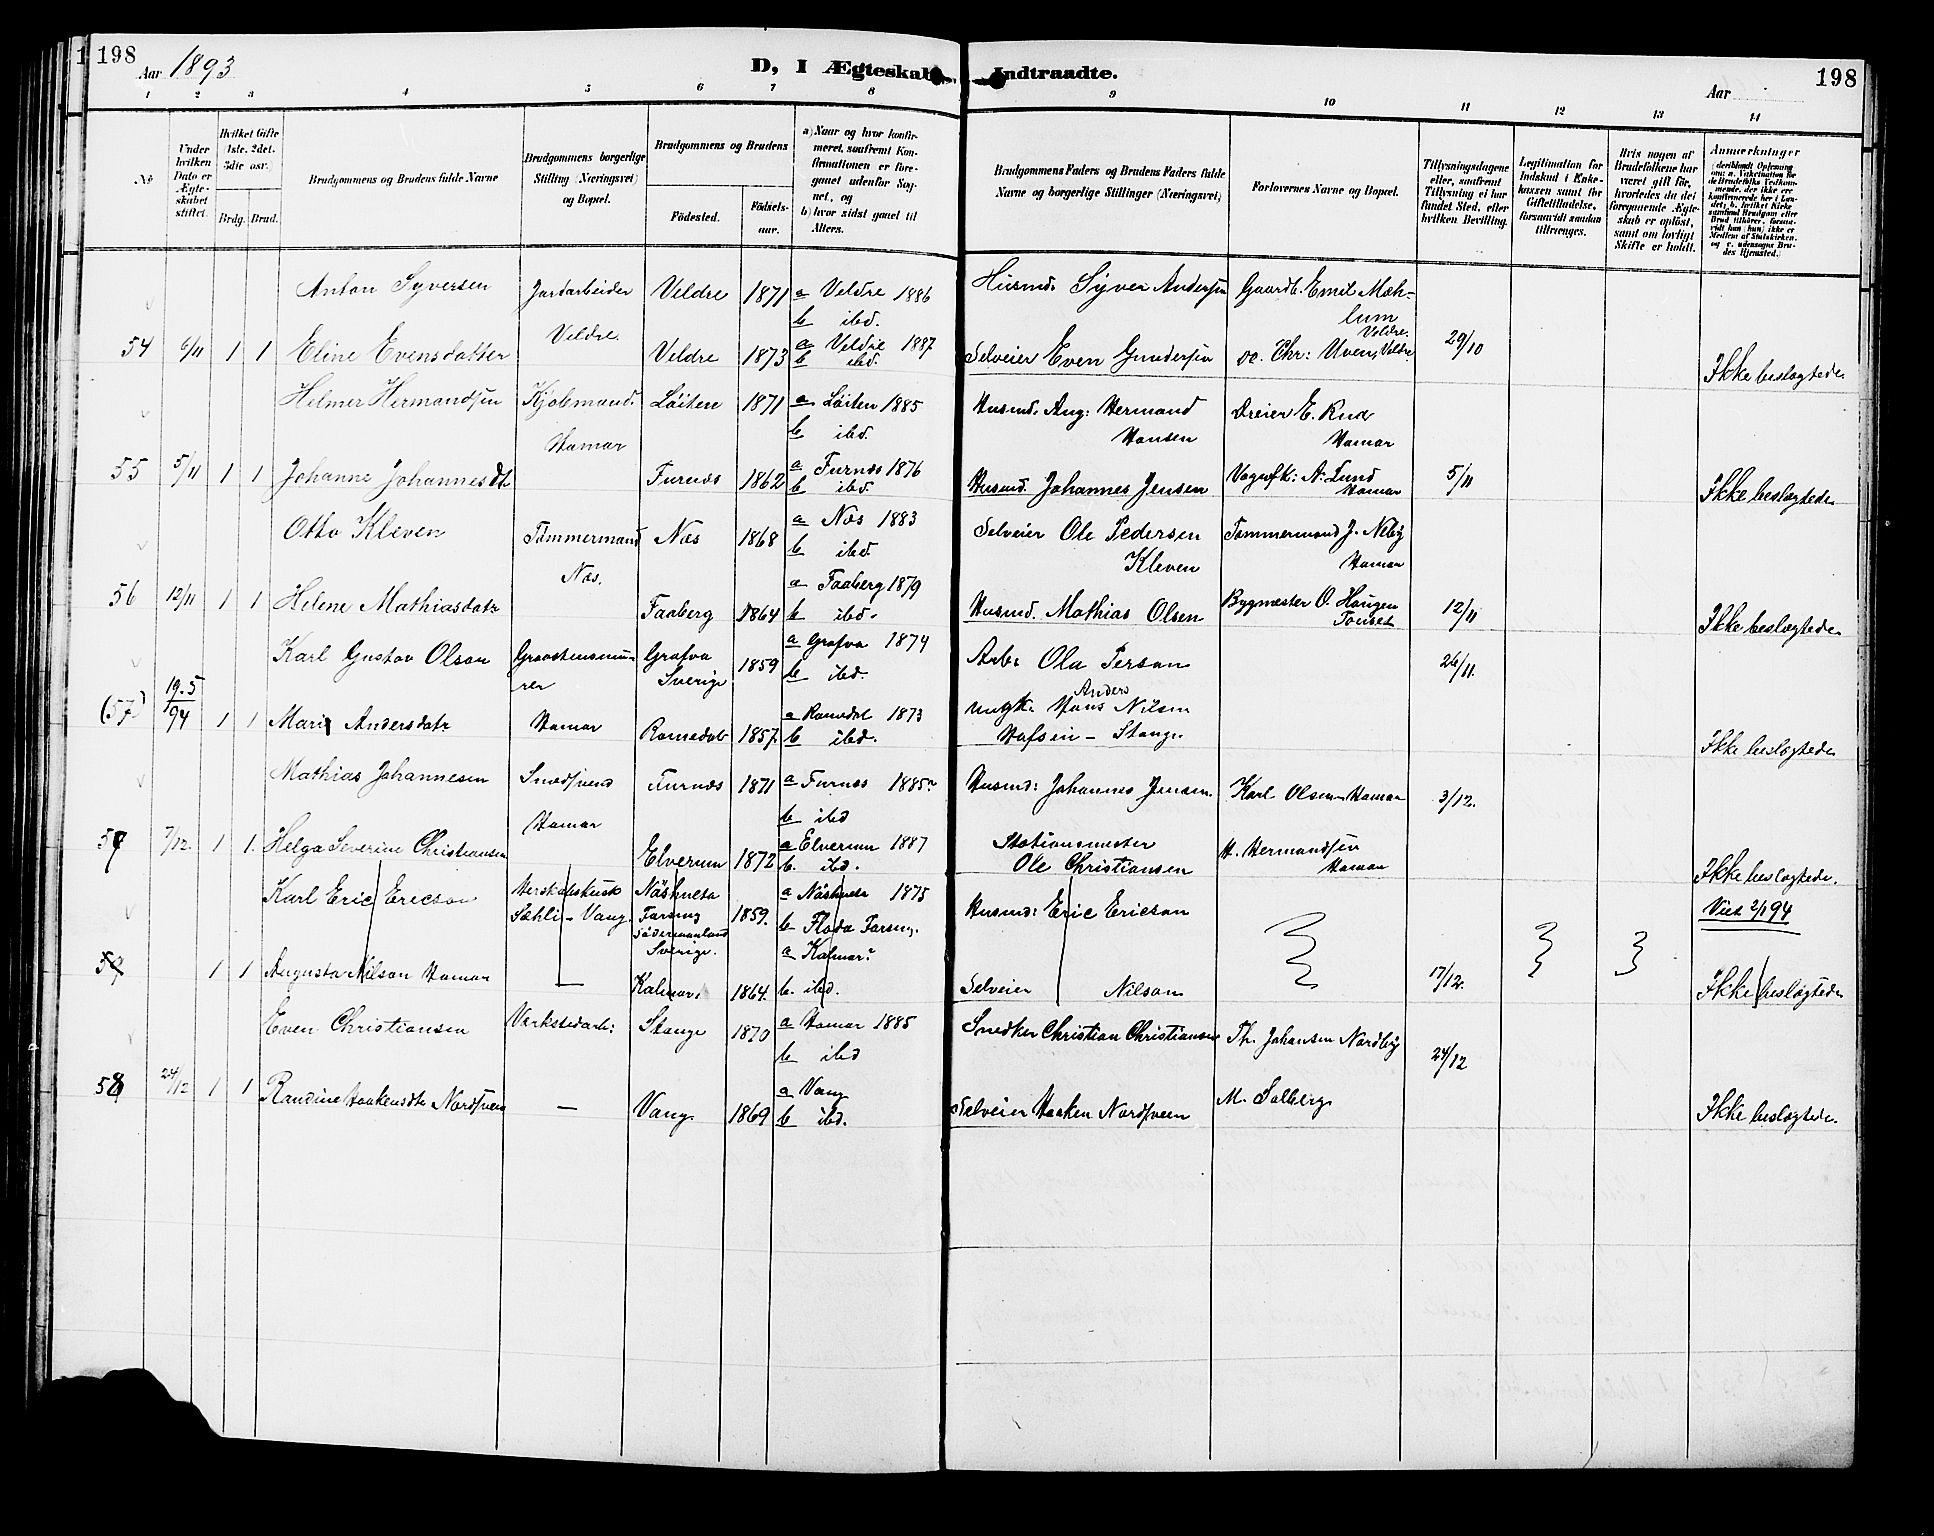 198
Aar 1893
D, I Ægteskab Indtraadte.
Aar
198
1 2 3 4 5 6 7 8 9 10 11 12 13 14
No
Under hvilken Dato er Ægteskabet stiftet.
Hvilket Gifte (1ste, 2det, 3die osv.)
Brdg. Brud.
Brudgommens og Brudens fulde Navne
Brudgommens borgerlige Stilling (Næringsvei) og Bopæl.
Brudgommens og Brudens
Födested.
Födselsaar.
a) Naar og hvor konfirmeret, saafremt Konfirmationen er foregaaet udenfor Sognet, og
b) hvor sidst gaaet til Alters.
Brudgommens Faders og Brudens Faders fulde Navne og borgerlige Stillinger (Næringsvei)
Forlovernes Navne og Bopæl.
Tillysningsdagene eller, saafremt Tillysning ei har fundet Sted, efter hvilken Bevilling.
Legitimation for Indskud i Enkekassen samt for Giftetilladelse, forsaavidt saadan tiltrænges.
Hvis nogen af Brudefolkene har været gift för, hvorledes da det foregaaende Ægteskab er oplöst, samt om lovligt Skifte er holdt.
Anmærkninger
Anton Syversen Jordarbeider Veldre 1871 a Veldre 1886 Husmd. Syver Andersen Gaardb. Emil Mæhlum
Veldre. b ibd. Veldre.
54 6/11 1 1 Eline Evensdatter Veldre 1873 a Veldre 1887 b ibd. Selveier Even Gundersen do. Chr: Uven, Veldre 29/10 Ikke beslægtede.
Helmer Hermandsen Kjøbmand. Løiten 1871 a Løiten 1885 Husmd. Aug: Hermand Hansen Dreier E. Rud
Hamar b ibd. Hamar
55 5/11 1 1 Johanne Johannesdt Furnæs 1862 a Furnæs 1876 b ibd. Husmd. Johannes Jensen Vognfk: A. Lund Hamar 5/11 Ikke beslægtede
Otto Kleven Tømmermand Næs 1868 a Næs 1883 Selveier Ole Pedersen Kleven Tømmermand J. Neby
Næs. b ibd Hamar
56 12/11 1 1 Helene Mathiasdatr Faaberg 1864 a Faaberg 1879 b ibd. Husmd. Mathias Olsen Bygmester O. Haugen Tønset 12/11 Ikke beslægtede
Karl Gustav Olson Graastensmurer Grafva Sverige 1859 a Grafva 1874 b ibd. Arb: Ola Person 26/11.
(57) 19.5/94 1 1 Mari Andersdatr Hamar Romedal 1857. a Romedal 1873 b ibd. ungk. Hans Anders Nilsen
Hafsen - Stange Ikke beslægtede
Mathias Johannesen Smedsvend Furnæs 1871 a Furnæs 1885. Husmd: Johannes Jensen. Karl Olsen Hamar 3/12.
Hamar b ibd
7/12. 1 1. Helga Severine Christiansen Elverum 1872 a Elverum 1887 b. ibd. Stationsmester Ole Christiansen H. Hermandsen Hamar Ikke beslægtede.
Karl Eric Ericson Herskabskusk Sæhli - Vang. Näshulta Sødermanland Sverige. 1859. a Näshulta 1875 b Floda Husmd: Eric Ericson Viet 2/1 94
59 1 1 Augusta Nilson Hamar — Kalmar. 1864. a Kalmar b. ibd. Selveier Nilson 17/12. Ikke beslægtede
Even Christiansen Værkstedarb: Stange 1870 a Hamar 1885 b ibd Snedker Christian Christiansen Th. Johansen Nordby
24/12
58 24/12 1 1 Randine Haakensdtr Nordsveen — Vang 1869 a Vang b ibd. Selveier Haaken Nordsveen M. Solberg Ikke beslægtede.